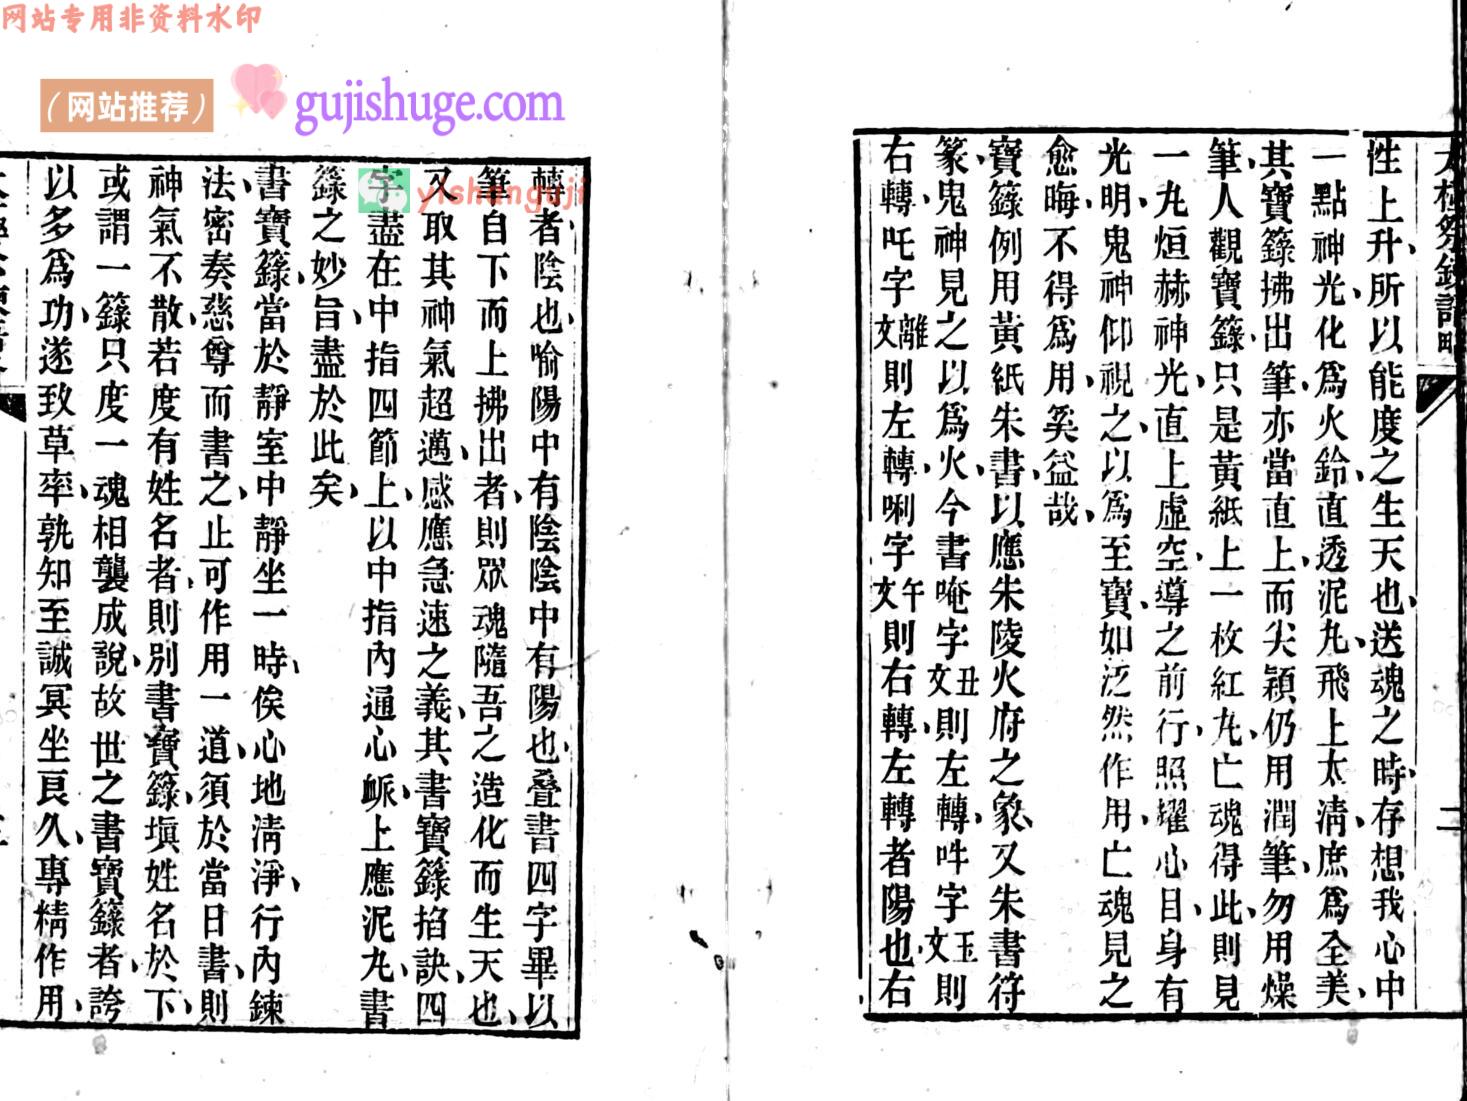 网站专用非资料水印
（网站推荐）
gujishuge.com
yishanguji
性上升、所以能度之生天也、送魂之時、存想我心中
一點神光、化爲火鈴、直透泥丸、飛上太淸、庶爲全美、
其寶籙拂出筆、亦當直上、而尖穎仍用潤筆、勿用燥
筆、人觀寶籙、只是黃紙上一枚紅丸、亡魂得此、則見
一丸烜赫神光、直上虛空、導之前行、照耀心目、身有
光明、鬼神仰視之、以爲至寶、如泛然作用、亡魂見之
愈晦、不得爲用、奚益哉、
寶籙例用黃紙朱書、以應朱陵火府之象、又朱書符
篆、鬼神見之以爲火、今書唵字丑文則左轉、吽字玉文則
右轉、吒字離文則左轉、唎字午文則右轉、左轉者陽也、右
轉者陰也、喻陽中有陰、陰中有陽也、叠書四字畢、以
筆自下而上拂出者、則眾魂隨吾之造化而生天也、
又取其神氣超邁、感應急速之義、其書寶籙掐訣、四
字盡在中指四節上、以中指內通心脈、上應泥丸、書
籙之妙旨、盡於此矣、
書寶籙、當於靜室中靜坐一時、俟心地清淨、行內鍊
法、密奏慈尊而書之、止可作用一道、須於當日書、則
神氣不散、若度有姓名者、則別書寶籙、塡姓名於下、
或謂一籙只度一魂、相襲成說、故世之書寶籙者、誇
以多爲功、遂致草率、孰知至誠冥坐良久、專精作用、